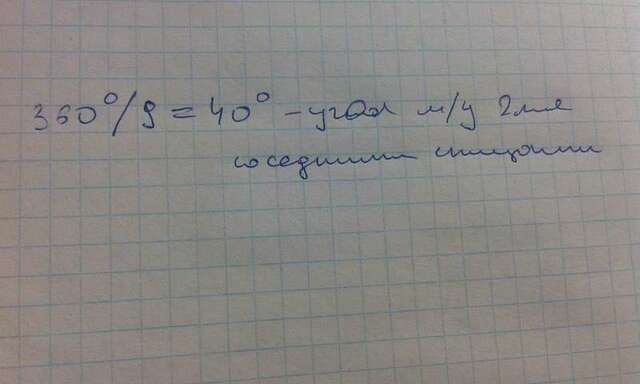 360°/9 = 40° – угол м/у 2мя
соседними спицами